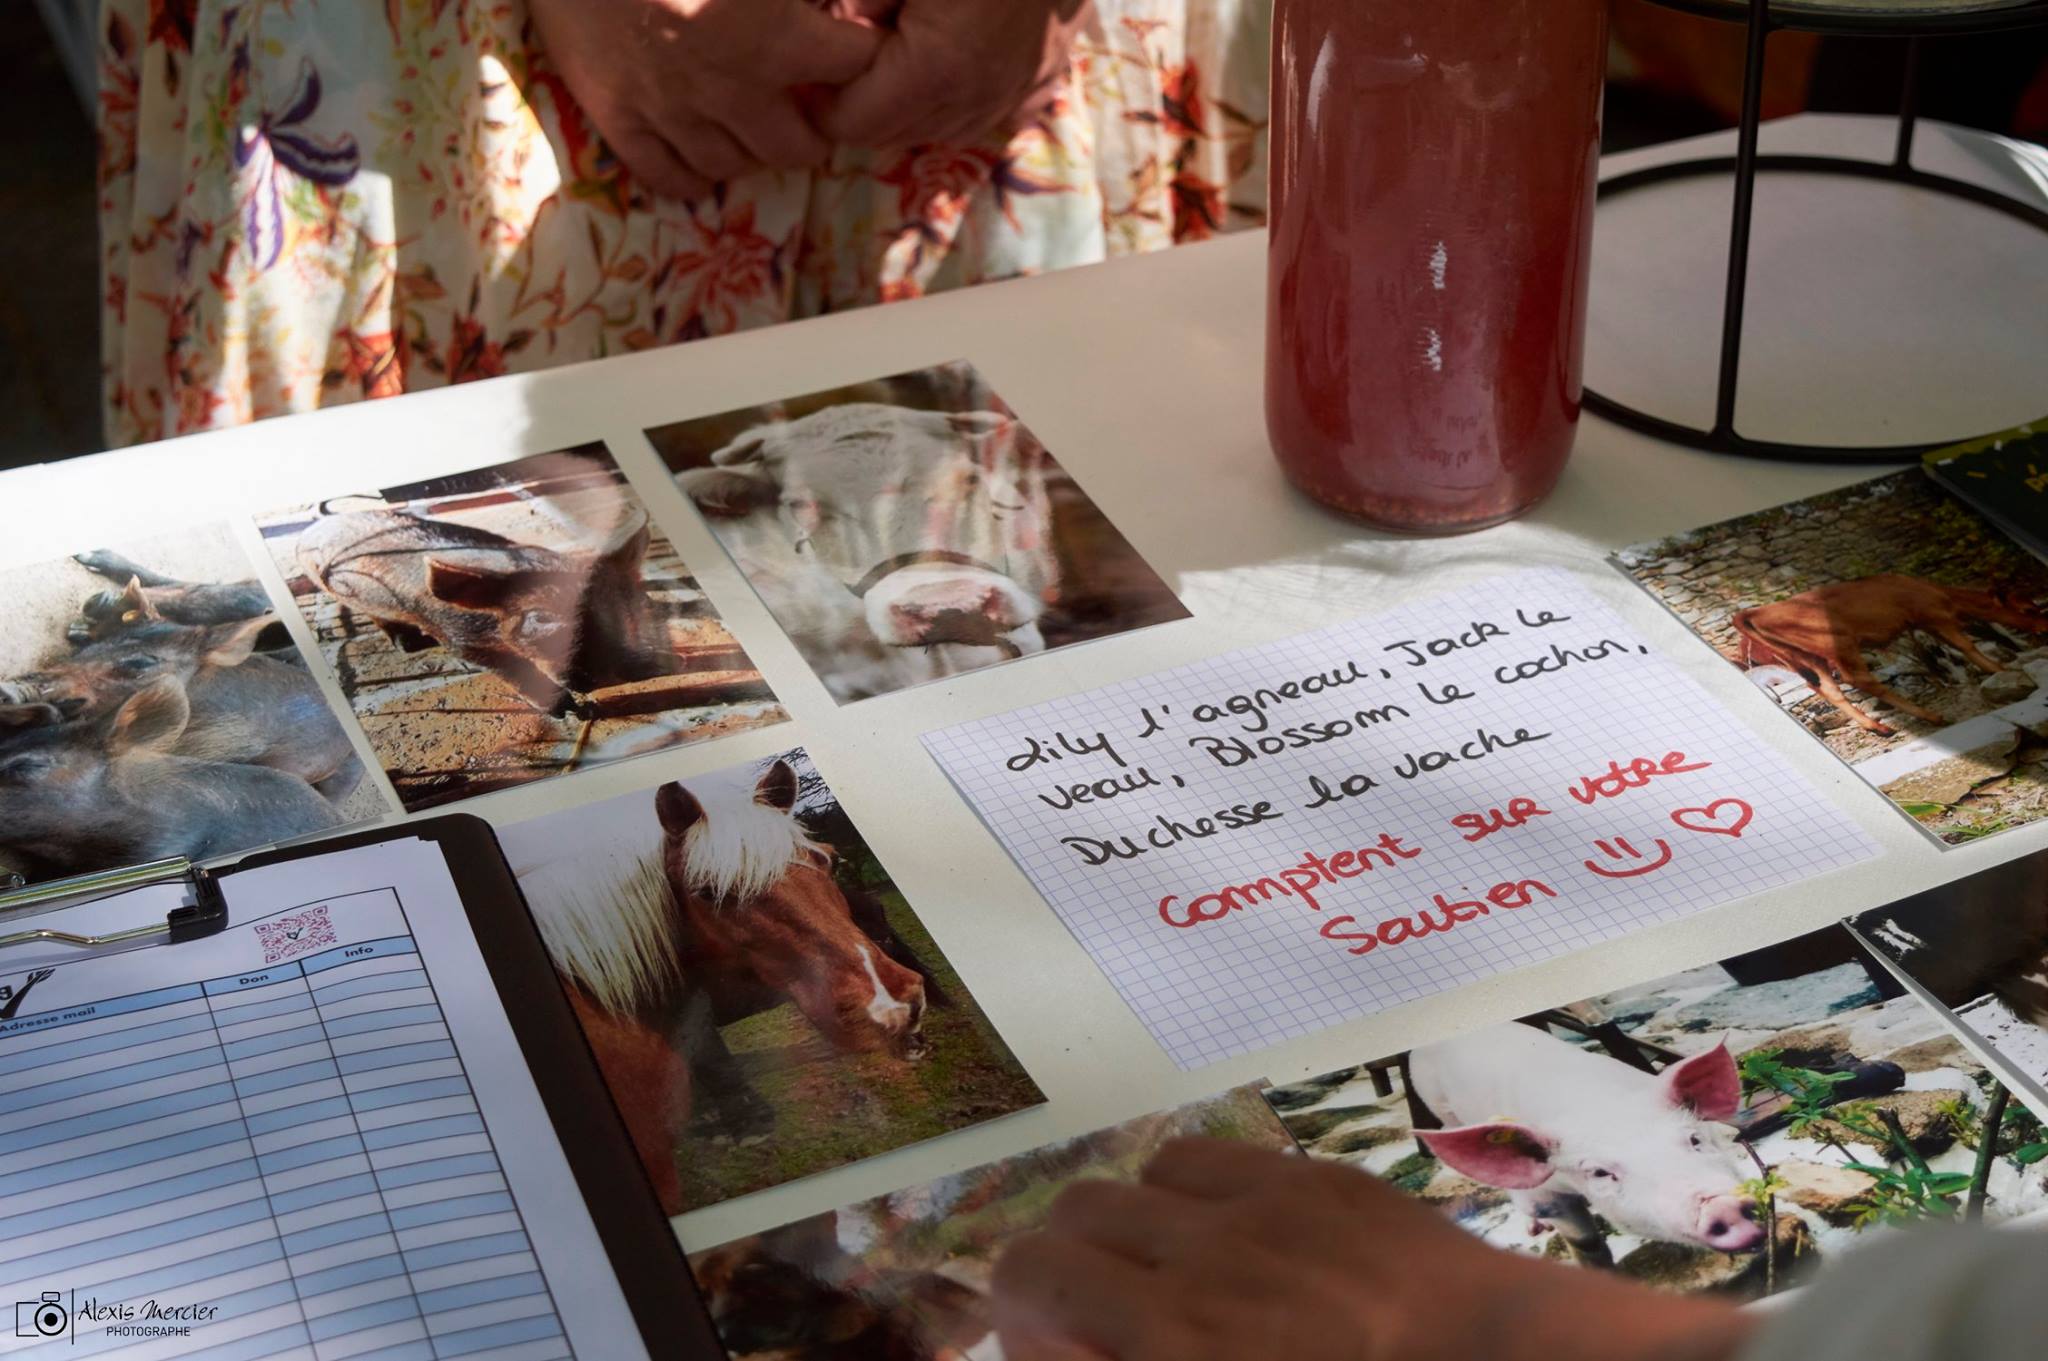 Lily l'agneau, Jack le
veau, Blossom le cochon,
Duchesse la vache
comptent sur votre
Soutien
Adresse mail
Don
Info
Alexis Mercier
PHOTOGRAPHE